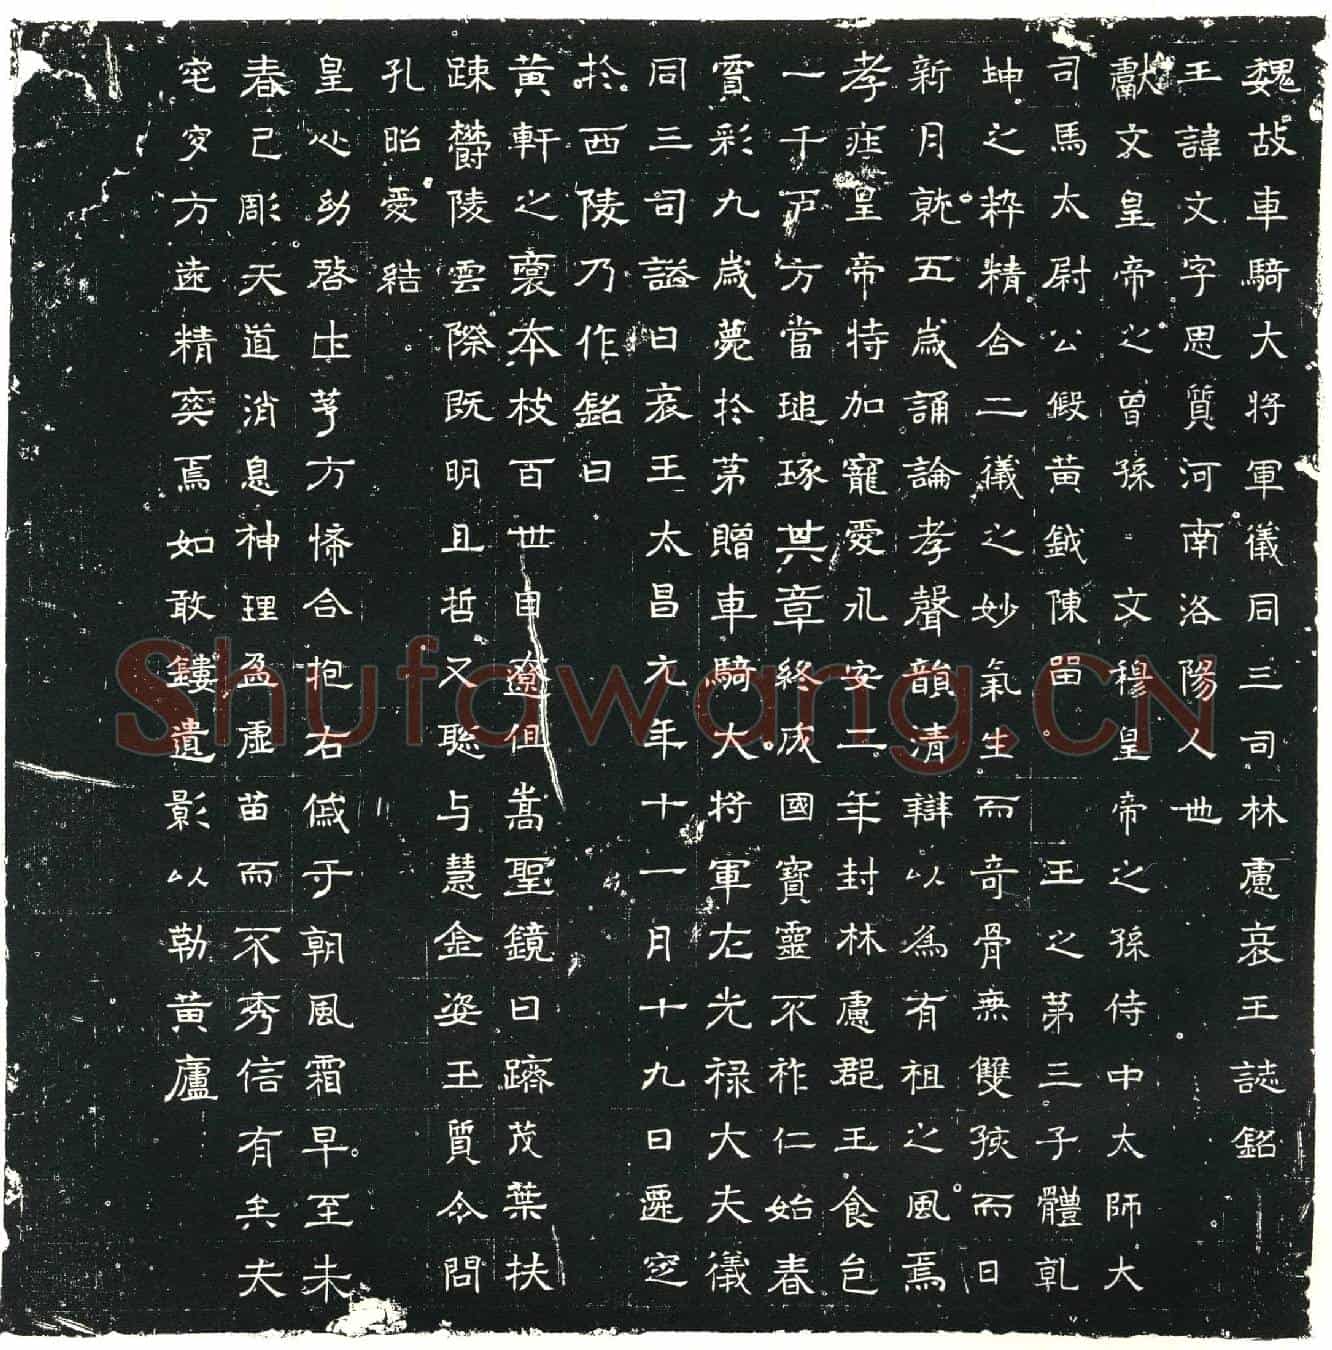 魏故車騎大將軍儀同三司林慮哀王誌銘
王諱文字思質河南洛陽人也
獻文皇帝之曾孫文穆皇帝之孫侍中太師大
司馬太尉公假黃鉞陳留王之第三子體乾
坤之粹精合二儀之妙氣生而奇骨無雙孩而日
新月就五歲誦論孝聲韻清辯以為有祖之風焉
孝莊皇帝特加寵愛永安二年封林慮郡王食邑
一千戶方當琢其章終成國寶靈不祚仁始春
賓彩九歲薨於第贈車騎大將軍左光祿大夫儀
同三司謚曰哀王太昌元年十一月十九日遷窆
於西陵乃作銘曰
黃軒之裔本枝百世自遼徂嵩聖鏡日躋茂葉扶
踈欝陵雲際既明且哲又聡与慧金姿玉質令問
孔昭愛結
皇心幼啓土茅方悕合抱右戚于朝風霜早至未
春已彫天道消息神理盈虛苗而不秀信有矣夫
窀穸方遠精爽焉如敢鏤遺影以勒黃廬
Shufawang.CN